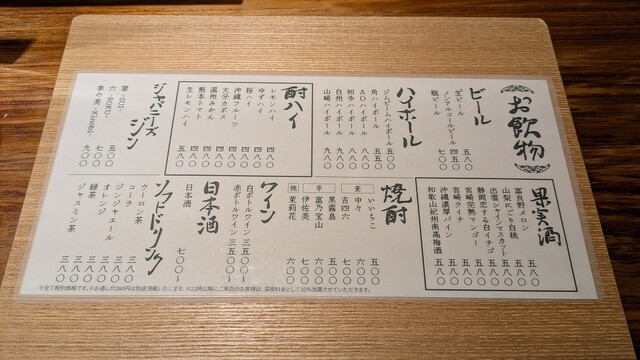 お飲物
ビール
生ビール 五八〇
ノンアルコールビール 四五〇
瓶ビール 七〇〇
ハイボール
ジムビームハイボール 五〇〇
角ハイボール 五五〇
AOハイボール 八八〇
知多ハイボール
白州ハイボール
山崎ハイボール
酎ハイ
レモンハイ 四八〇
ゆずハイ 四八〇
桜ハイ 四八〇
沖縄フルーツ 四八〇
大分カボス 四八〇
温州みかん 四八〇
熊本トマト 四八〇
生レモンハイ 五八〇
ジャパニーズジン
翠 -SUI- 五〇〇
六 -ROKU- 七〇〇
季の美 -Kinobi- 九〇〇
果実酒
富良野メロン 五八〇
山梨にごり白桃 五八〇
出雲シャインマスカット 五八〇
静岡恋する白イチゴ 五八〇
宮崎完熟マンゴー 五八〇
宮崎ライチ 五八〇
沖縄濃厚パイン 五八〇
和歌山紀州南高梅酒 五八〇
焼酎
いいちこ 五〇〇
麦 中々 六〇〇
吉四六 七〇〇
黒霧島 五〇〇
芋 富乃宝山 六〇〇
伊佐美 七〇〇
他 茉莉花 六〇〇
ワイン
白ボトルワイン 三五〇〇〜
赤ボトルワイン 三五〇〇〜
日本酒
日本酒 七〇〇〜
ソフトドリンク
ウーロン茶 三八〇
コーラ 三八〇
ジンジャエール 三八〇
オレンジ 三八〇
緑茶 三八〇
ジャスミン茶 三八〇
※全て税別価格です。※お通し代380円は別途頂戴いたします。※22時以降にご来店のお客様は、深夜料金として10%加算させていただきます。